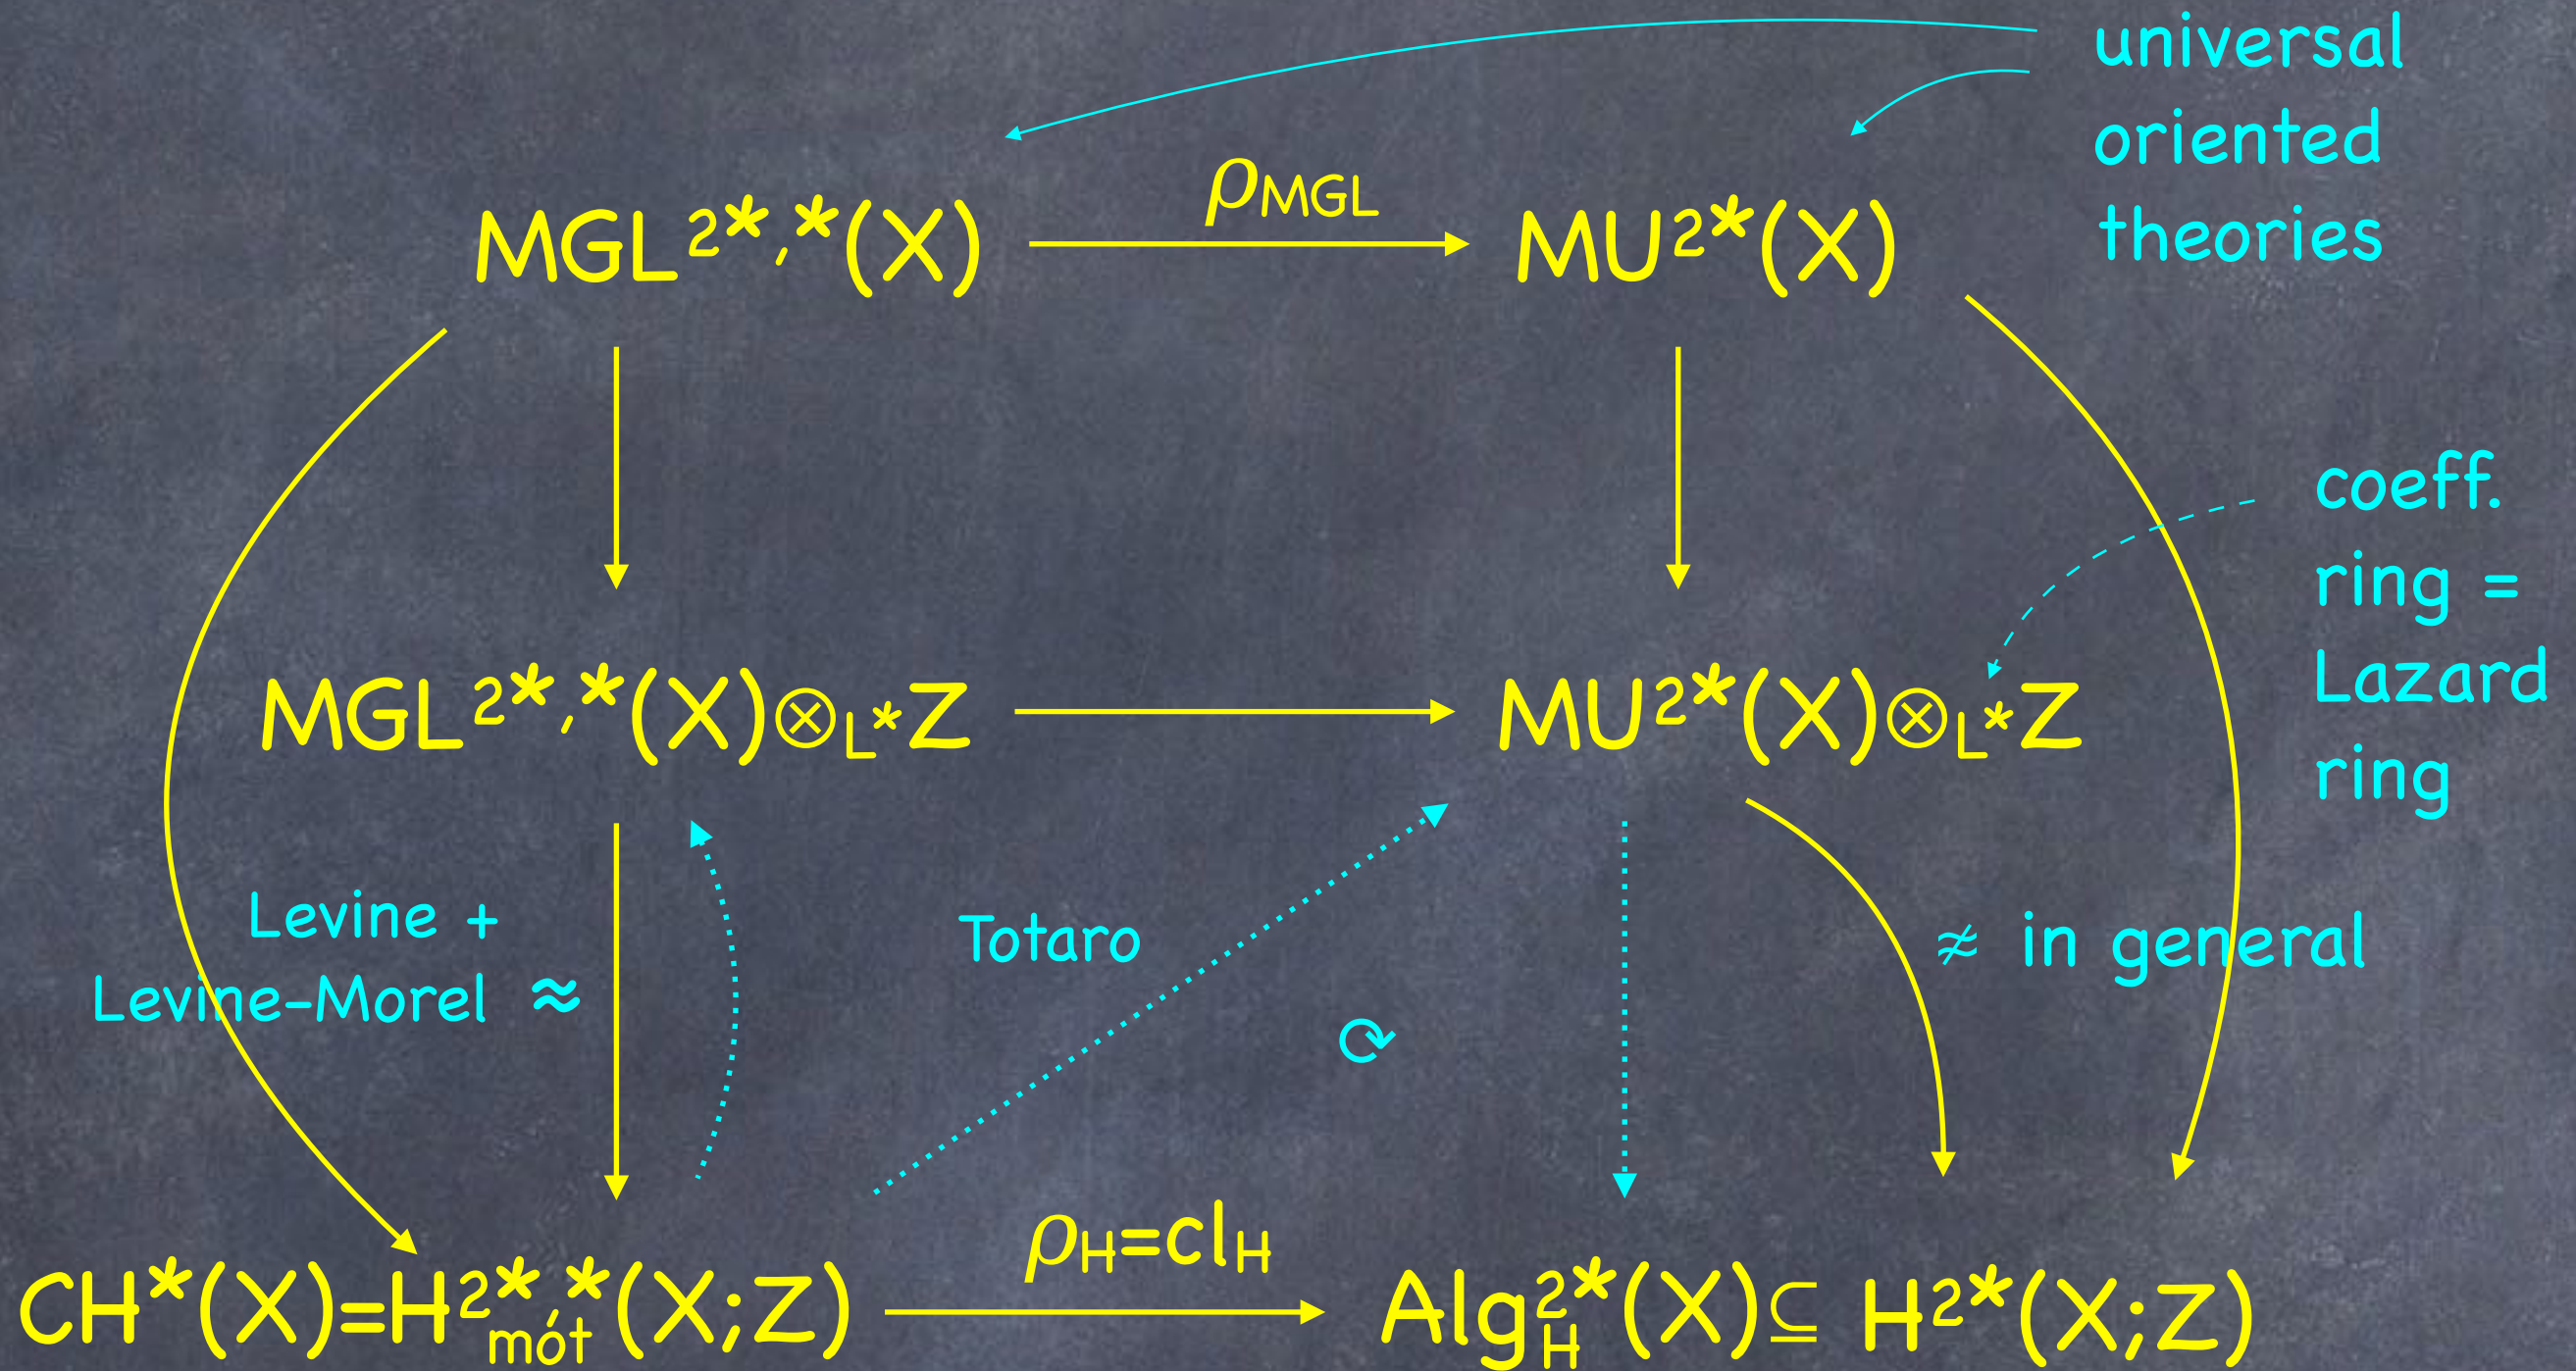 universal
oriented
theories
MGL²*,*(X)
ρMGL
MU²*(X)
coeff.
ring =
Lazard
ring
MGL²*,*(X)⊗L*Z
MU²*(X)⊗L*Z
Levine +
Levine-Morel ≈
Totaro
≉ in general
⟳
ρH=clH
CH*(X)=H²*,*mot(X;Z)
Alg²*H(X)⊆ H²*(X;Z)